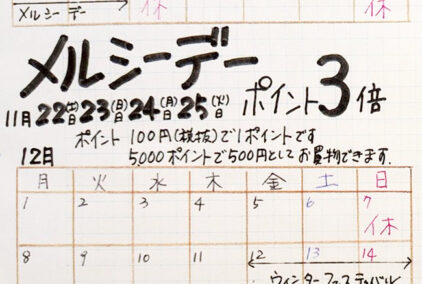 メルシーデー 休 休
メルシーデー
11月22(土)23(日)24(月)25(火) ポイント3倍
ポイント 100円(税抜)で1ポイントです
5,000ポイントで500円としてお買物できます.
12月
月 火 水 木 金 土 日
1 2 3 4 5 6 7
休
8 9 10 11 12 13 14
ウィンターフェスティバル